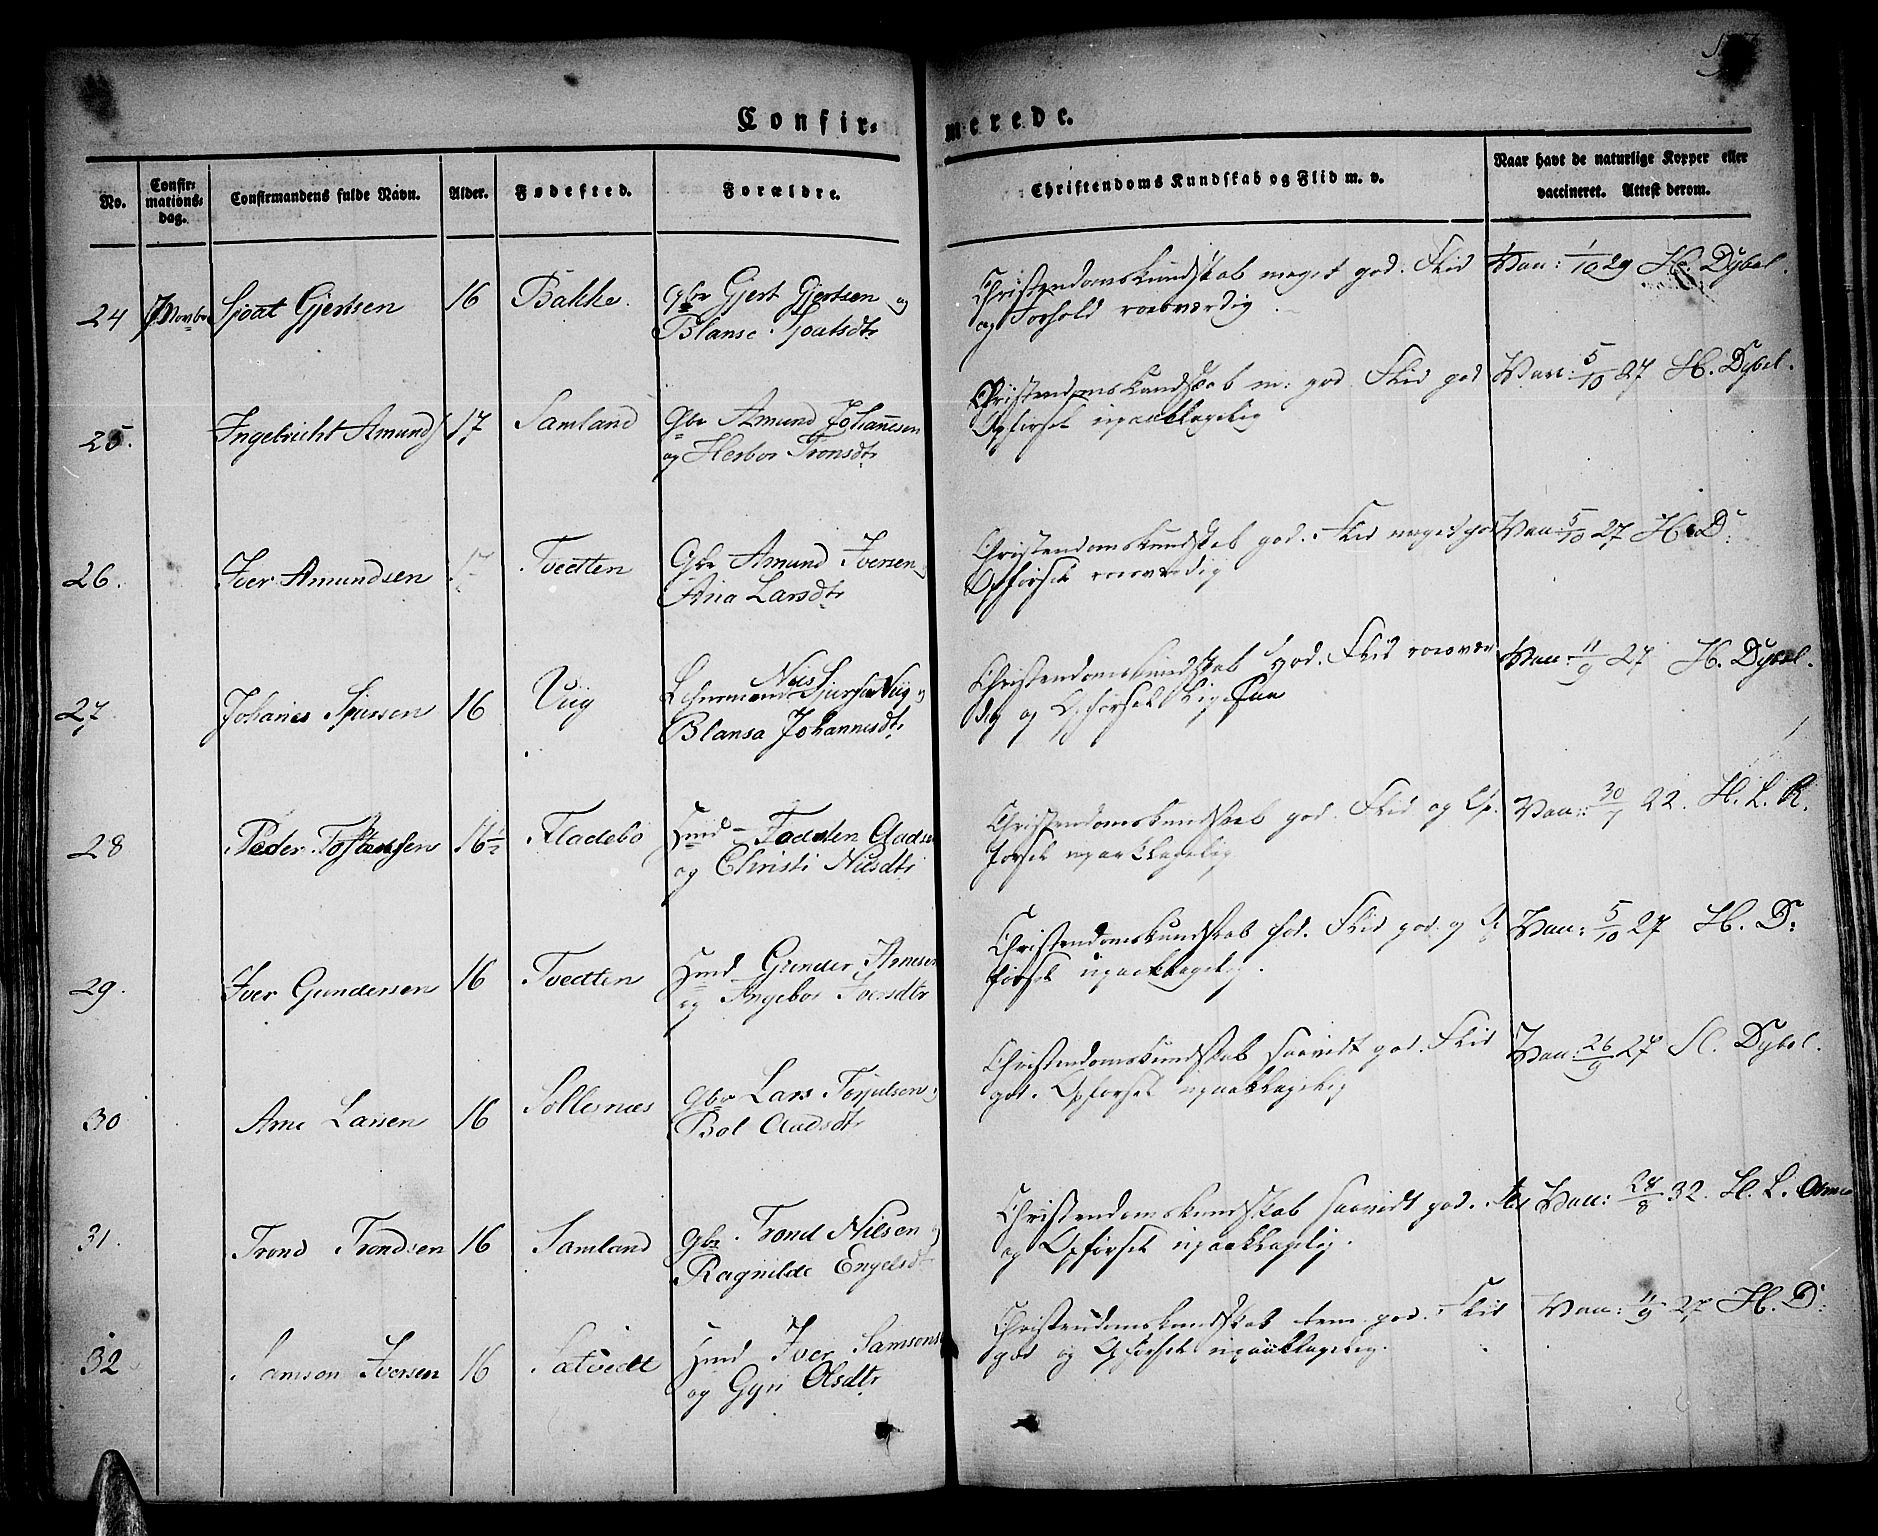 Confir-
merede.
No.
Confir-
mations-
dag.
Confirmandens fulde Navn.
Alder.
Fødested.
Forældre.
Christendoms Kundskab og Flid m. v.
Naar havt de naturlige Kopper eller
vaccineret. Attest derom.
24 Sjoat Gjertsen 16 Bakke. Gbr Gjert Gjertsen og
Blanse Sjoatsdtr
Christendomskundskab meget god. Flid
og Forhold roesværdig
Vac: 1/10 29 H. Dybel.
25. Ingebricht Amunds 17 Samland Gbr Amund Johannesen
og Herbor Tronsdtr
Christendomskundskab m: god Flid god
Opførsel upaaklagelig
Vac: 5/10 27 H. Dybel.
26. Iver Amundsen 17 Tvedten Gbr Amund Iversen
Ana Larsdtr
Christendomskundskab god. Flid meget god
Opførsel roesværdig
Vac 5/10 27 H. D:
27 Johanes Sjursen 16 Viig
Nils
Blansa Johannesdtr
Christendomskundskab god. Flid roesvær
dig og Opførsel ligesaa
Vac: 11/9 27 H. Dybel.
28 Peder Tostensen 16½ Fladebø Huusmd Tosten Aadsen
og Christi Nilsdtr
Christendomskundskab god. Flid og Op-
førsel upaaklagelig
Vac: 30/7 22. H. L. R.
29. Iver Gundersen 16 Tvedten Huusmd Gunder Arnesen
og Ingebor Iversdtr
Christendomskundskab god. Flid god og Op
førsel upaaklagelig.
Vac: 5/10 27 H. D:
30 Arne Larsen 16 Sollesnæs Gbr Lars Torjulsen og
Bol Aadsdtr
Christendomskundskab saavidt god. Flid
god. Opførsel upaaklagelig
Vac: 26/9 27 H. Dybel.
31. Trond Trondsen 16 Samland Gbr. Trond Nilsen og
Ragnilde Engelsdt
Christendomskundskab saavidt god. Flid
og Opførsel upaaklagelig.
Vac: 24/8 32. H. L.
32 Samson Iversen 16 Satvedt Huusmd Iver Samsons
og Gyri Olsdtr
Christendomskundskab tem god. Flid
god og Opførsel upaaklagelig.
Vac: 11/9 27 H. D: